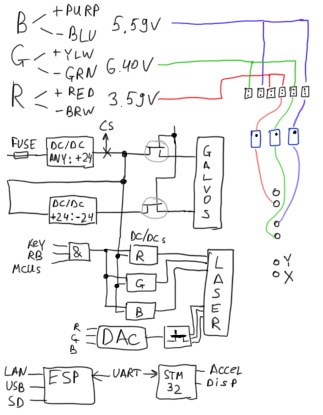 B + PURP
- BLU 5.59V
G + YLW
- GRN 6.40V
R + RED
- BRW 3.59V
CS
FUSE
DC/DC
ANY:+24
GALVOS
DC/DC
+24:-24
KEY
RB
MCUs
&
DC/DCs
R
G
B
LASER
R
G
B
DAC
Y
X
LAN
USB
SD
ESP
UART
STM
32
Accel
Disp